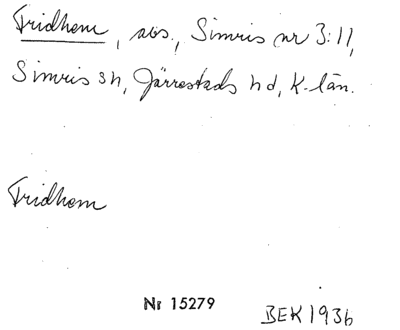 Fridhem, avs., Simris nr 3:11,
Simris sn, Järrestads hd, K-län.
Fridhem
Nr 15279
BEK 1936